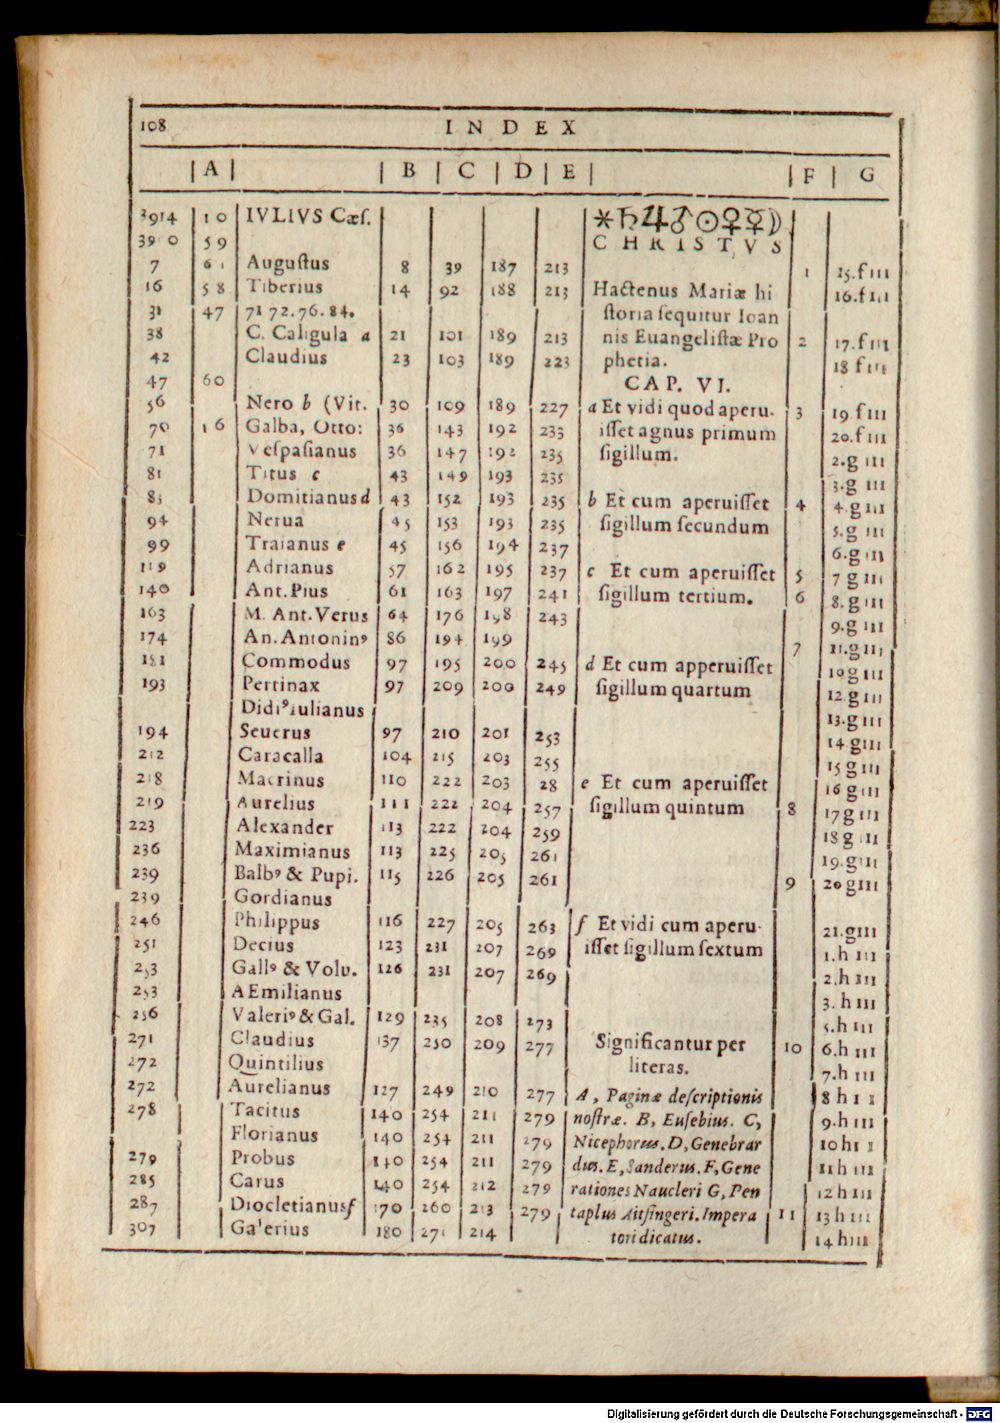 108 INDEX
A B C D E F G
3914 10 IVLIVS Cæſ. ✶♄♃♂☉♀☿☽
39 0 59 CHRISTVS
7 Auguſtus 8 39 187 213 1 15.f III
16 58 Tiberius 14 92 188 213 Hactenus Mariæ hi 16.f III
31 47 71 72.76.84. ſtoria ſequitur Ioan
38 C. Caligula a 21 101 189 213 nis Euangeliſtæ Pro 2 17.f III
42 Claudius 23 103 189 223 phetia. 18 f III
47 60 CAP. VI.
56 Nero b (Vit. 30 109 189 227 a Et vidi quod aperu- 3 19.f III
70 16 Galba, Otto: 36 143 192 233 iſſet agnus primum 20.f III
71 Veſpaſianus 36 147 192 235 ſigillum. 2.g III
81 Titus c 43 149 193 235 3.g III
83 Domitianus d 43 152 193 235 b Et cum aperuiſſet 4 4.g III
94 Nerua 45 153 193 235 ſigillum ſecundum 5.g III
99 Traianus e 45 156 194 237 6.g III
119 Adrianus 57 162 195 237 c Et cum aperuiſſet 5 7 g III
140 Ant. Pius 61 163 197 241 ſigillum tertium. 6 8.g III
163 M. Ant. Verus 64 176 198 243 9.g III
174 An. Antoninꝰ 86 194 199 7 11.g III
181 Commodus 97 195 200 245 d Et cum apperuiſſet 10 g III
193 Pertinax 97 209 200 249 ſigillum quartum 12 g III
Didiꝰ iulianus 13.g III
194 Seuerus 97 210 201 253 14 g III
212 Caracalla 104 215 203 255 15 g III
218 Macrinus 110 222 203 28 e Et cum aperuiſſet 16 g III
219 Aurelius 111 222 204 257 ſigillum quintum 8 17 g III
223 Alexander 113 222 204 259 18 g III
236 Maximianus 113 225 205 261 19.g III
239 Balbꝰ & Pupi. 115 226 205 261 9 20 g III
239 Gordianus
246 Philippus 116 227 205 263 f Et vidi cum aperu- 21.g III
251 Decius 123 231 207 269 iſſet ſigillum ſextum 1.h III
253 Gallꝰ & Volu. 126 231 207 269 2.h III
253 AEmilianus 3.h III
256 Valeriꝰ & Gal. 129 235 208 273 5.h III
271 Claudius 137 250 209 277 Significantur per 10 6.h III
272 Quintilius literas. 7.h III
272 Aurelianus 127 249 210 277 A, Paginæ deſcriptionis 8 h III
278 Tacitus 140 254 211 279 noſtræ. B, Euſebius. C, 9.h III
Florianus 140 254 211 279 Nicephorus. D, Genebrar 10 h III
279 Probus 140 254 211 279 dus. E, Sanderus. F, Gene 11 h III
285 Carus 140 254 212 279 rationes Naucleri G, Pen 12 h III
287 Diocletianus f 170 260 213 279 taplus Aitſingeri. Impera 11 13 h III
307 Galerius 180 271 214 tori dicatus. 14 h III
Digitalisierung gefördert durch die Deutsche Forschungsgemeinschaft - DFG